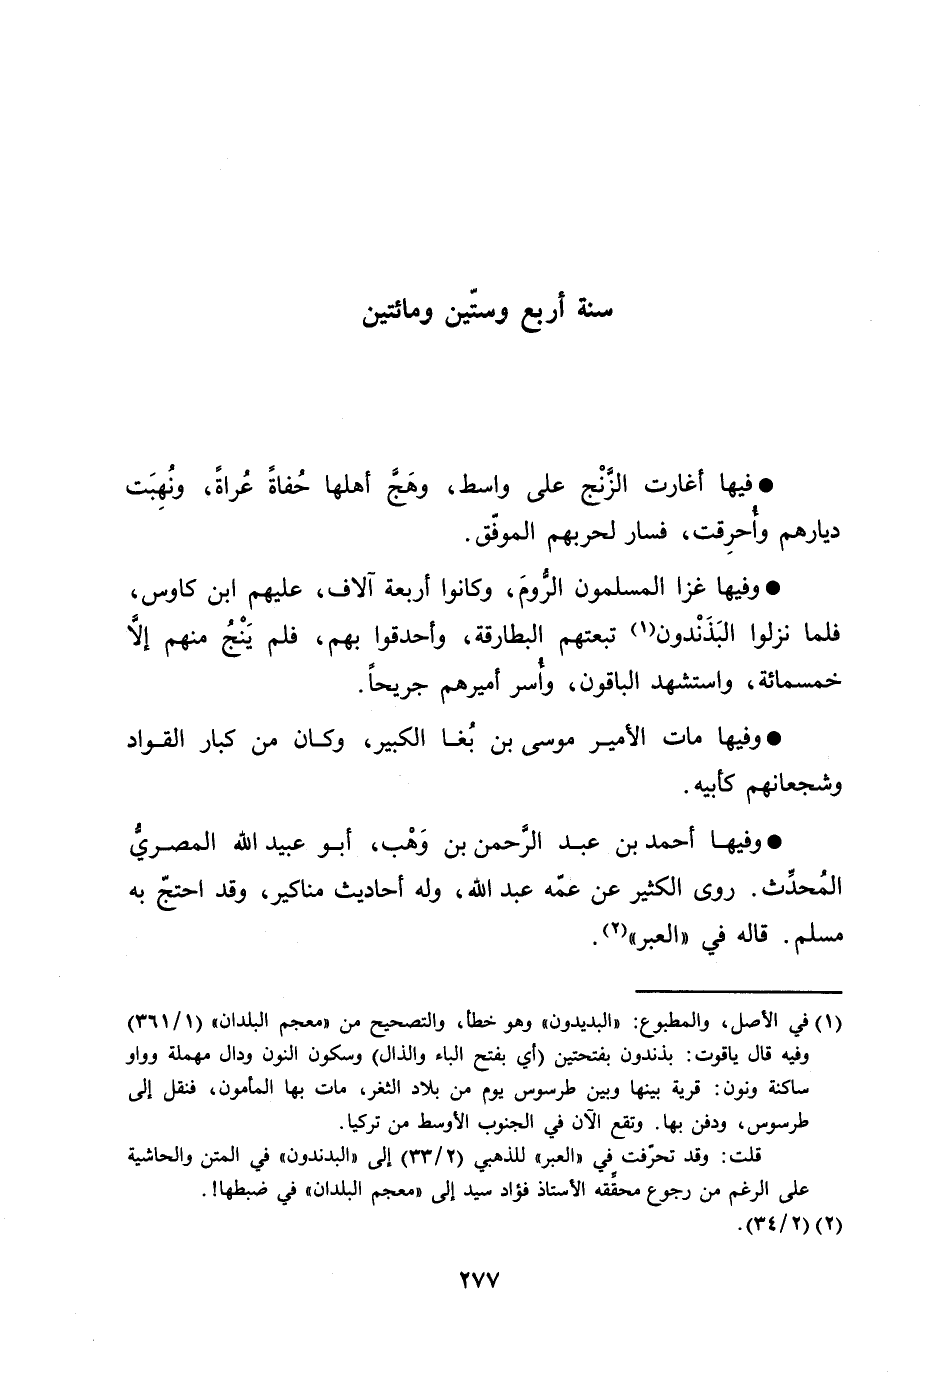 سنة أربع وستّين ومائتين
● فيها أغارت الزَّنْج على واسط، وهَجَّ أهلها حُفاةً عُراةً، ونُهِبَت
ديارهم وأُحرِقت، فسار لحربهم الموفّق.
● وفيها غزا المسلمون الرُّومَ، وكانوا أربعة آلاف، عليهم ابن كاوس،
فلما نزلوا البَذَنْدون(١) تبعتهم البطارقة، وأحدقوا بهم، فلم يَنْجُ منهم إلَّا
خمسمائة، واستشهد الباقون، وأُسر أميرهم جريحاً.
● وفيها مات الأمير موسى بن بُغا الكبير، وكان من كبار القواد
وشجعانهم كأبيه.
● وفيها أحمد بن عبد الرَّحمن بن وَهْب، أبو عبيد الله المصريُّ
المُحدِّث. روى الكثير عن عمّه عبد الله، وله أحاديث مناكير، وقد احتجّ به
مسلم. قاله في «العبر»(٢).
(١) في الأصل، والمطبوع: «البديدون» وهو خطأ، والتصحيح من «معجم البلدان» (٣٦١/١)
وفيه قال ياقوت: بذندون بفتحتين (أي بفتح الباء والذال) وسكون النون ودال مهملة وواو
ساكنة ونون: قرية بينها وبين طرسوس يوم من بلاد الثغر، مات بها المأمون، فنقل إلى
طرسوس، ودفن بها. وتقع الآن في الجنوب الأوسط من تركيا.
قلت: وقد تحرّفت في «العبر» للذهبي (٣٣/٢) إلى «البدندون» في المتن والحاشية
على الرغم من رجوع محقِّقه الأستاذ فؤاد سيد إلى «معجم البلدان» في ضبطها!.
(٢) (٣٤/٢).
٢٧٧